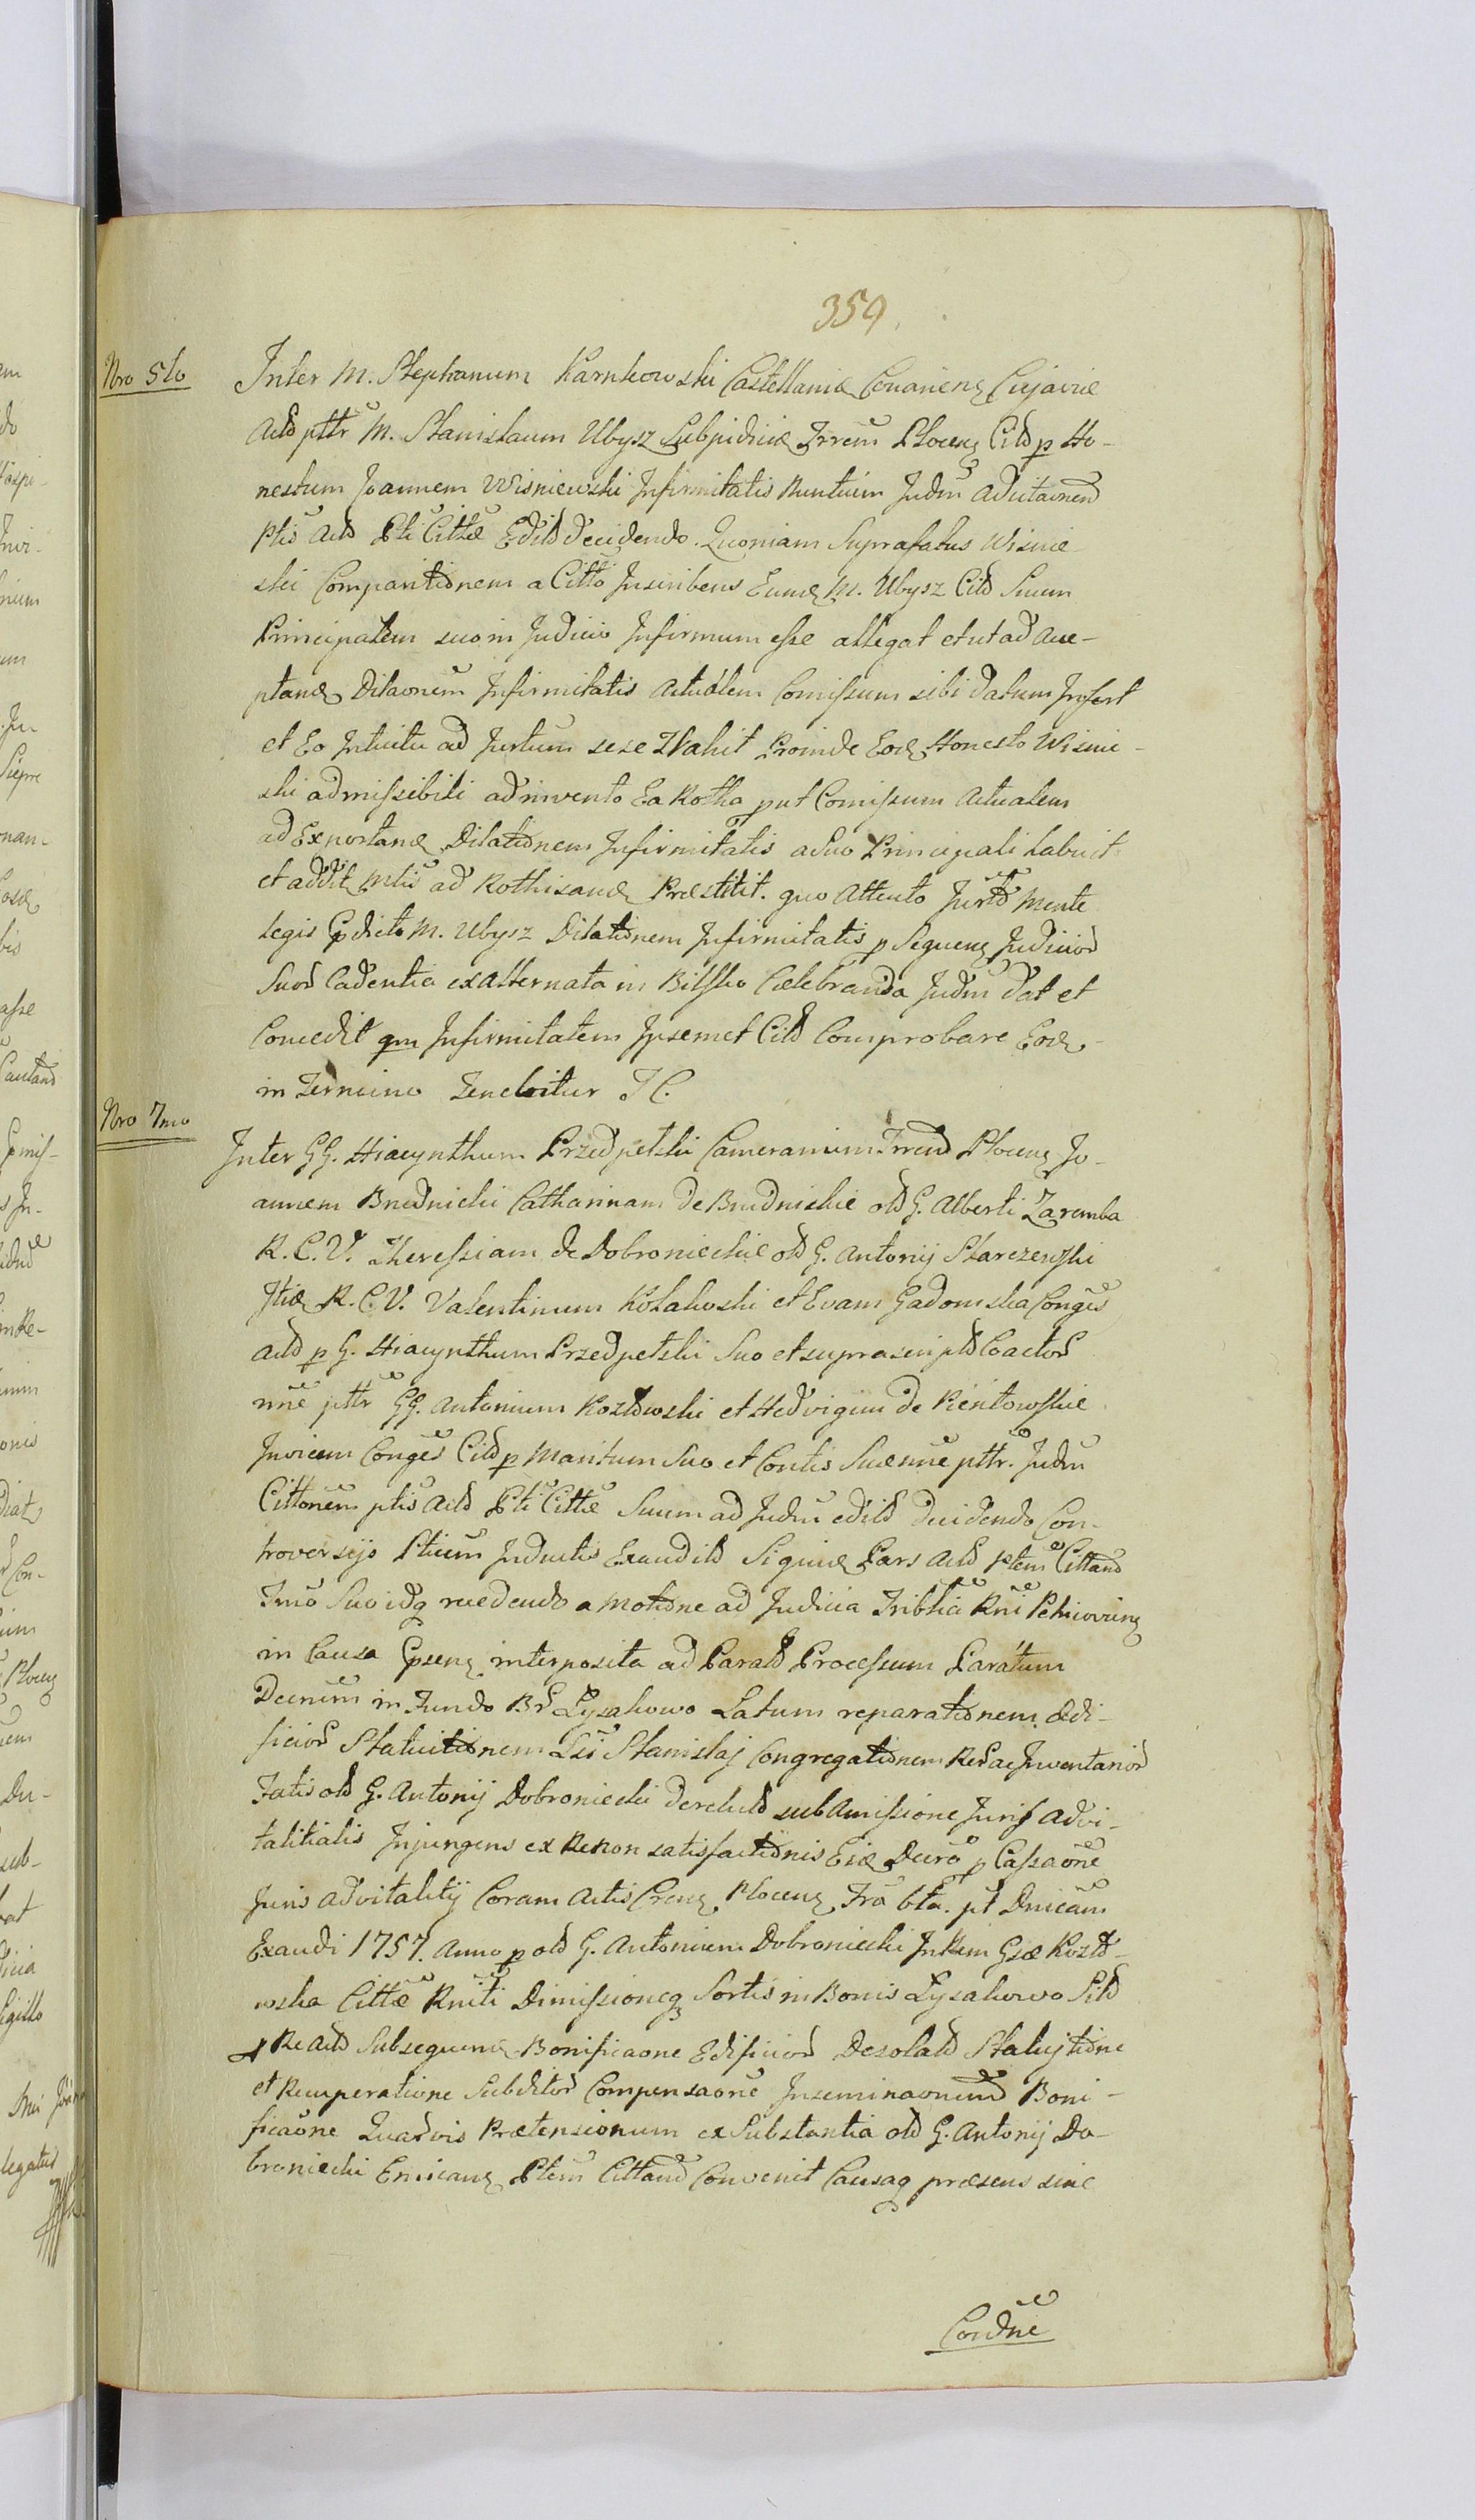 359.
Nro 5to
Inter M. Stephanum Karnkowski Castellanię Conariens Cujavię
Actõ pttr M. Stanislaum Ubysz Subjudicę Trrem Plocens Citõ p Ho-
nestum Joannem Wisniewski Infirmitatis Nuntium Judm
Ptis Actõ Pti Cittæ Edito decidendo. Quoniam Suprafatus Wisnie-
ski Comparitionem a Citto Inscribens Eumq M. Ubysz Citõ Suum
Principalem suo in Judicio Infirmum esse allegat et ut ad Acce-
ptand Dilaonem Infirmitatis Actualem Comissum sibi datum Infert
et Eo Intuitu ad Jurtum sese Trahit Proinde Eod Honesto Wisnie-
ski admissibili ad invento Ea Rotha put Comissum Actualem
ad Exportand Dilationem Infirmitatis a Suo Principali habuit
et addit Mtis ad Rothisand Præstitit. quo Attento Jurto Mente
Legis Gpdicto M. Ubysz Dilationem Infirmitatis p Sequens Judiciod
Suod Cadentia ex Alternata in Bilsko Cœlebranda Judm dat et
Concedit qm Infirmitatem Ipsemet Citõ Comprobare Eod
in Termino Tenebitur I C.
Nro 7mo
Inter GG. Hiacynthum Przedpelski Camerarium Trrend Plocens Jo-
annem Brudnicki Catharinam de Brudnickie olõ G. Alberti Zaremba
R. C. V. Theressiam de Dobronieckie olõ G. Antonij Starczewski
Itid R. C. V. Valentinum Kołakoski et Evam Gadomska Conges
Actõ p G. Hiacynthum Przedpelski Suo et suprascriptõ Coactod
nne pttr GG. Antonium Kozłowski et Hedvigim de Kientowskie
Invicem Conges Citõ p Maritum Suo et Contis Suæ nne pttr. Judm
Cittonem ptis Actõ Pti Cittæ Suum ad Judm editõ decidendo Con-
troversijs Ptium Inductis Exauditõ Siquid Pars Actõ ptem Cittand
Trmo Suo idq recedendo a Motione ad Judicia Tribtia Rni Petricovens
in Causa Gpsens interposita ad Paratõ Processum Paratum
Decrum in Fundo Br Łysakowo Latum reparationem ædi-
ficiod Statuitionem Sti Stanislaj Congregationem Rer ac Inventariod
Fatis olõ G. Antonij Dobroniecki derelictõ sub Amissione Juris advi-
talitialis Injungens ex Re non satisfactionis Eid Decro p Cassaone
Juris advitalitij Coram Actis Crens Plocens Fra 6ta. pt Dnicam
Exaudi 1757. Anno p olõ G. Antonium Dobroniecki In Rem Gsæ Kozło-
wska Cittæ Rniti Dimissioneq Sortis in Bonis Łysakowo Sitõ
p Re Actõ Subsequend Bonificaone Edificiod Desolatõ Statujtione
et Recuperatione Subditod Compensaone Inseminaonumd Boni-
ficaone Quarvis Prætensionum ex Substantia olõ G. Antonij Do-
broniecki Emicans Ptem Cittand Convenit Causaq præsens sine
Condne